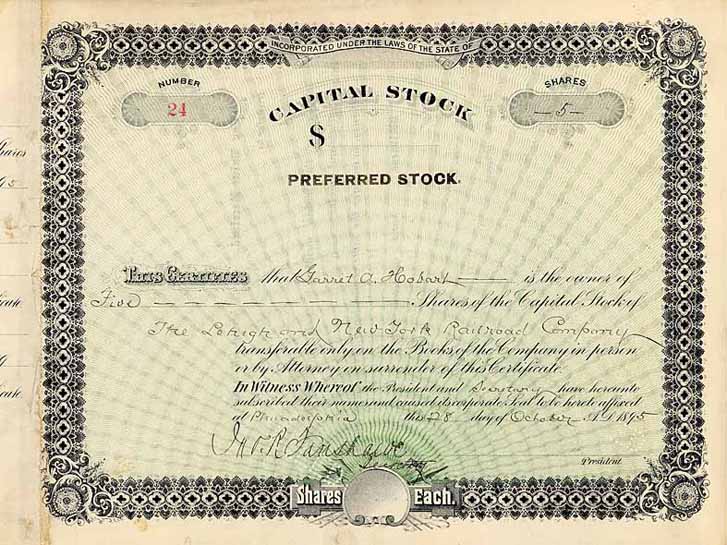 INCORPORATED UNDER THE LAWS OF THE STATE OF
NUMBER
24
CAPITAL STOCK
SHARES
—5—
$
PREFERRED STOCK.
This Certifies that Garret A. Hobart is the owner of
Five Shares of the Capital Stock of
The Lehigh and New York Railroad Company
transferable only on the Books of the Company in person
or by Attorney on surrender of this Certificate.
In Witness Whereof the President and Secretary have hereunto
subscribed their names and caused its corporate Seal to be hereto affixed
at Philadelphia this 28 day of October A.D. 1895
Jno. R. Fanshawe
Secretary
President
Shares Each.